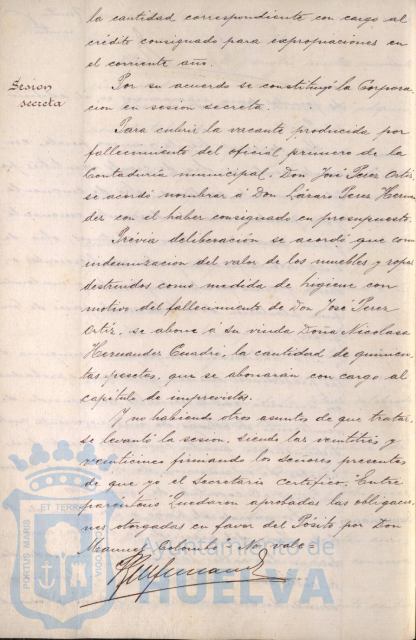 la cantidad correspondiente con cargo al
crédito consignado para expropiaciones en
el corriente año.
Sesion
secreta
Por su acuerdo se constituyó la Corpora
cion en sesion secreta.
Para cubrir la vacante producida por
fallecimiento del oficial primero de la
Contaduría municipal, Don José Perez Ortiz,
se acordó nombrar á Don Lázaro Perez Hernan
der con el haber consignado en presupuesto.
Prévia deliberación se acordó que como
indemnizacion del valor de los muebles y ropas
destruidos como medida de higiene con
motivo del fallecimiento de Don José Perez
Ortiz, se abone á su viuda Doña Nicolasa
Hernander Cuadri, la cantidad de quinien
tas pesetas, que se abonarán con cargo al
capítulo de imprevistos.
Y no habiendo otros asuntos de que tratar,
se levantó la sesion, siendo las veintitrés y
veinticinco firmando los señores presentes
de que yo el Secretario certifico. Entre
parentesis Quedaron aprobadas las obligacio
nes otorgadas en favor del Pósito por Don
Manuel Colombo No vale
PORTUS MARIS ET TERRAE
Ayuntamiento de
HUELVA